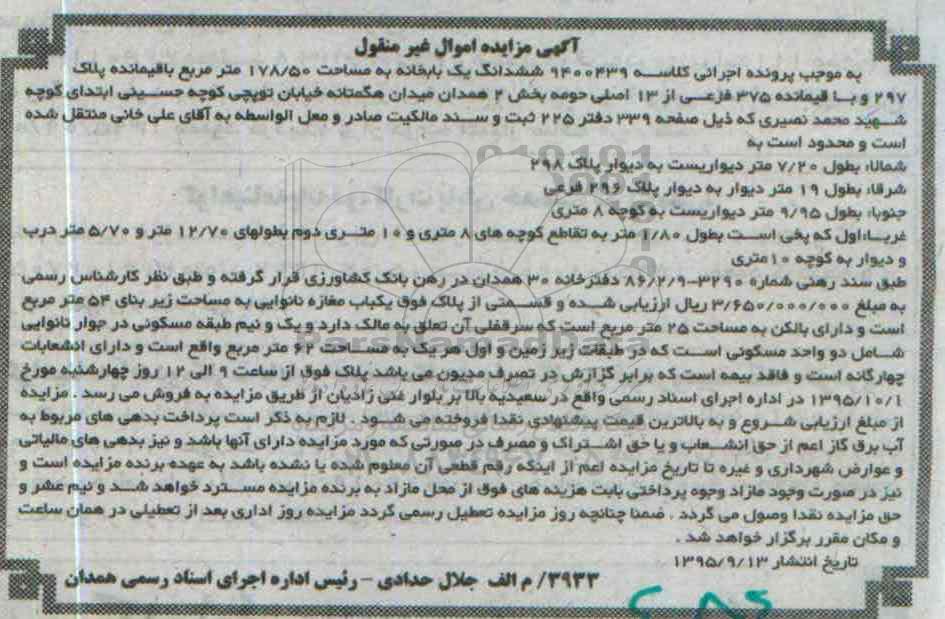 آگهی مزایده اموال غیر منقول
به موجب پرونده اجرائی کلاسه ۹۴۰۰۴۳۹ ششدانگ یک بابخانه به مساحت ۱۷۸/۵۰ متر مربع باقیمانده پلاک
۲۹۷ و با قیمانده ۳۷۵ فرعی از ۱۳ اصلی حومه بخش ۲ همدان میدان هگمتانه خیابان توپچی کوچه حسینی ابتدای کوچه
شهید محمد نصیری که ذیل صفحه ۳۳۹ دفتر ۲۲۵ ثبت و سند مالکیت صادر و معل الواسطه به آقای علی خانی منتقل شده
است و محدود است به
شمالا: بطول ۷/۲۰ متر دیواریست به دیوار پلاک ۲۹۸
شرقا: بطول ۱۹ متر دیوار به دیوار پلاک ۲۹۶ فرعی
جنوبا: بطول ۹/۹۵ متر دیواریست به کوچه ۸ متری
غربا:اول که پخی است بطول ۱/۸۰ متر به تقاطع کوچه های ۸ متری و ۱۰ متری دوم بطولهای ۱۲/۷۰ متر و ۵/۷۰ متر درب
و دیوار به کوچه ۱۰متری
طبق سند رهنی شماره ۳۲۹۰-۸۶/۲/۹ دفترخانه ۳۰ همدان در رهن بانک کشاورزی قرار گرفته و طبق نظر کارشناس رسمی
به مبلغ ۳/۶۵۰/۰۰۰/۰۰۰ ریال ارزیابی شده و قسمتی از پلاک فوق یکباب مغازه نانوایی به مساحت زیر بنای ۵۴ متر مربع
است و دارای بالکن به مساحت ۲۵ متر مربع است که سرقفلی آن تعلق به مالک دارد و یک و نیم طبقه مسکونی در جوار نانوایی
شامل دو واحد مسکونی است که در طبقات زیر زمین و اول هر یک به مساحت ۶۲ متر مربع واقع است و دارای انشعابات
چهارگانه است و فاقد بیمه است که برابر گزارش در تصرف مدیون می باشد پلاک فوق از ساعت ۹ الی ۱۲ روز چهارشنبه مورخ
۱۳۹۵/۱۰/۱ در اداره اجرای اسناد رسمی واقع در سعیدیه بالا بر بلوار غنی زادیان از طریق مزایده به فروش می رسد . مزایده
از مبلغ ارزیابی شروع و به بالاترین قیمت پیشنهادی نقدا فروخته می شود . لازم به ذکر است پرداخت بدهی های مربوط به
آب برق گاز اعم از حق انشعاب و یا حق اشتراک و مصرف در صورتی که مورد مزایده دارای آنها باشد و نیز بدهی های مالیاتی
و عوارض شهرداری و غیره تا تاریخ مزایده اعم از اینکه رقم قطعی آن معلوم شده یا نشده باشد به عهده برنده مزایده است و
نیز در صورت وجود مازاد وجوه پرداختی بابت هزینه های فوق از محل مازاد به برنده مزایده مسترد خواهد شد و نیم عشر و
حق مزایده نقدا وصول می گردد . ضمنا چنانچه روز مزایده تعطیل رسمی گردد مزایده روز اداری بعد از تعطیلی در همان ساعت
و مکان مقرر برگزار خواهد شد .
تاریخ انتشار ۱۳۹۵/۹/۱۳
۳۹۳۳/ م الف جلال حدادی - رئیس اداره اجرای اسناد رسمی همدان
ParsNamadData